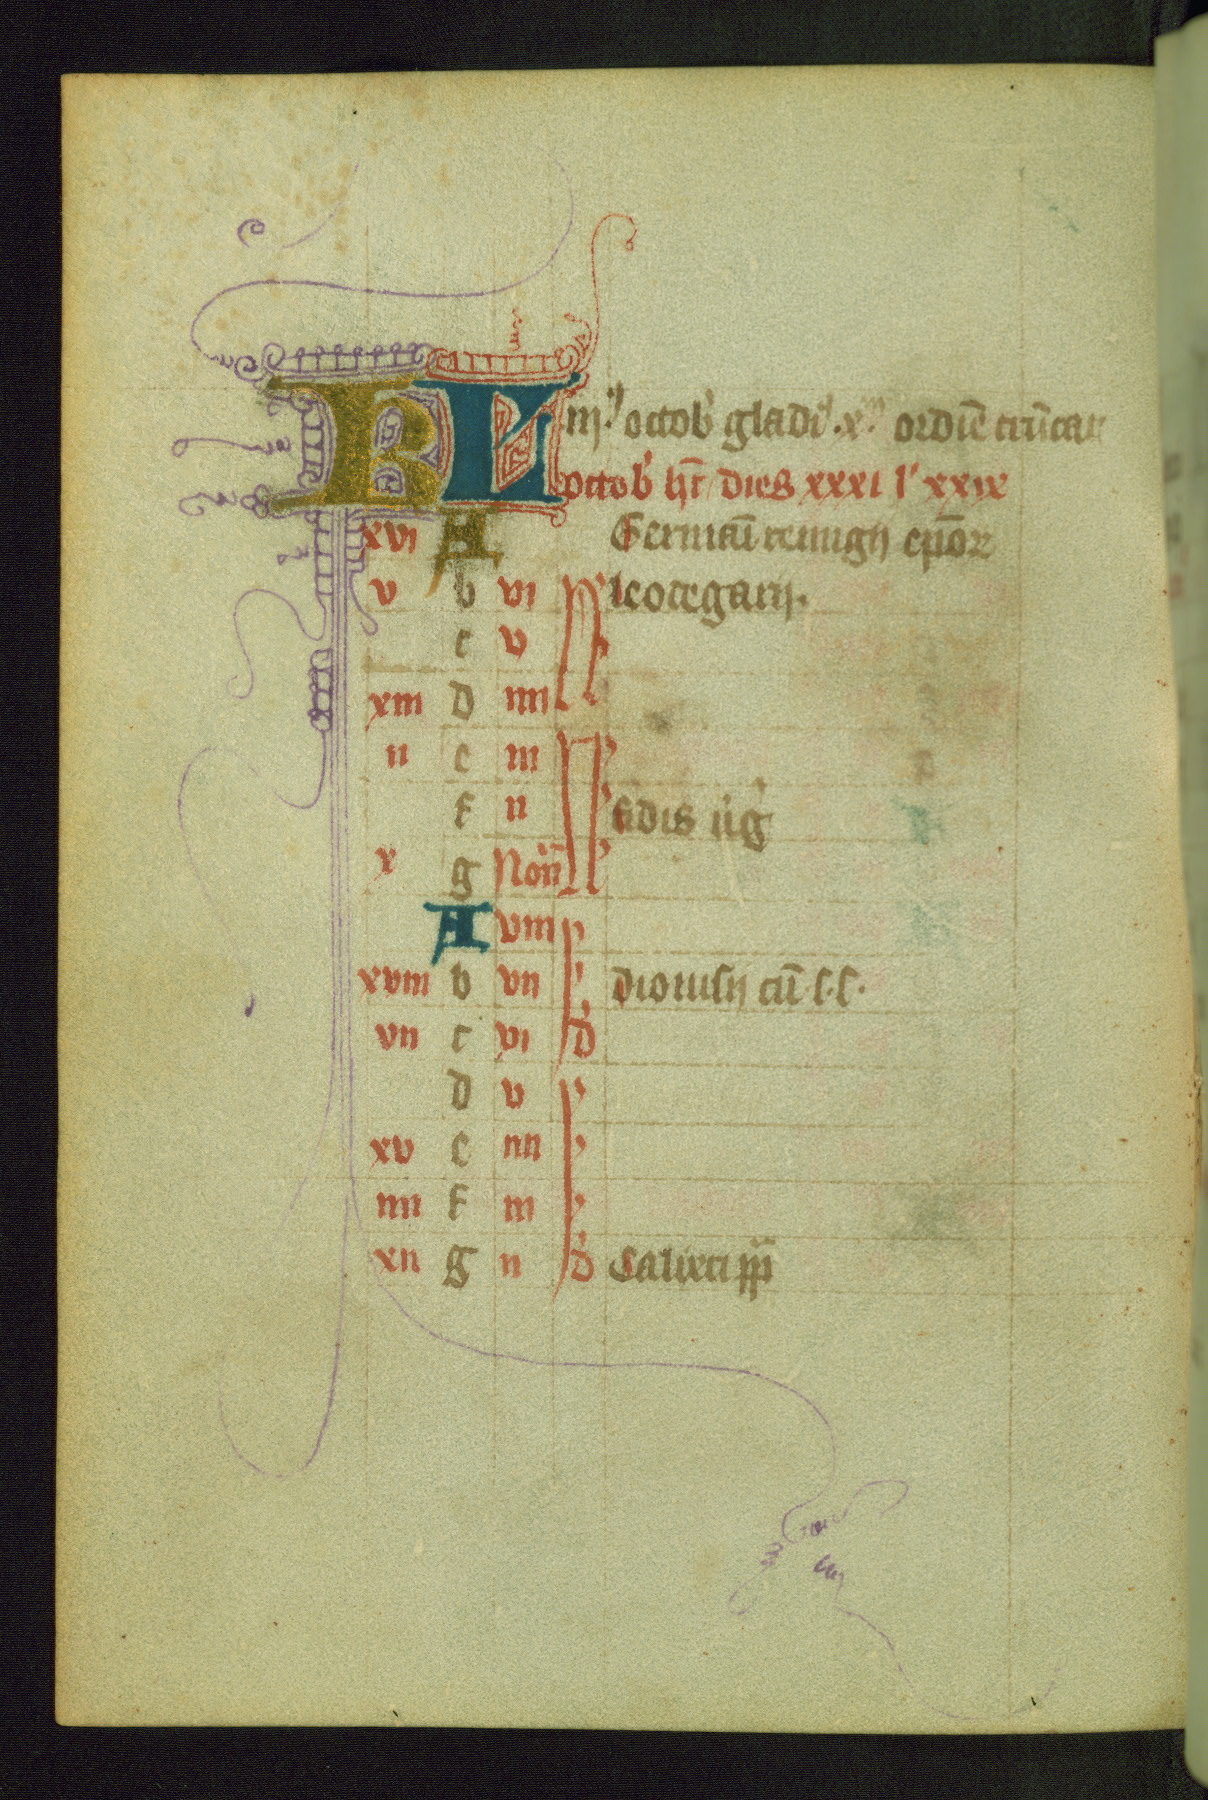 KL iij octob gladi x ordīe
octob ht dies xxxi l xxix
xvi A Germāi remigij epōꝝ
v b vi N leodegarij.
c v
xiii d iiii
ii e iii N
f ii fidis uig
x g Noñ
A viii
xviii b vii dionisij cū s. s.
vii c vi id
d v
xv e iiii
iiii f iii
xii g ii id Calixti pp